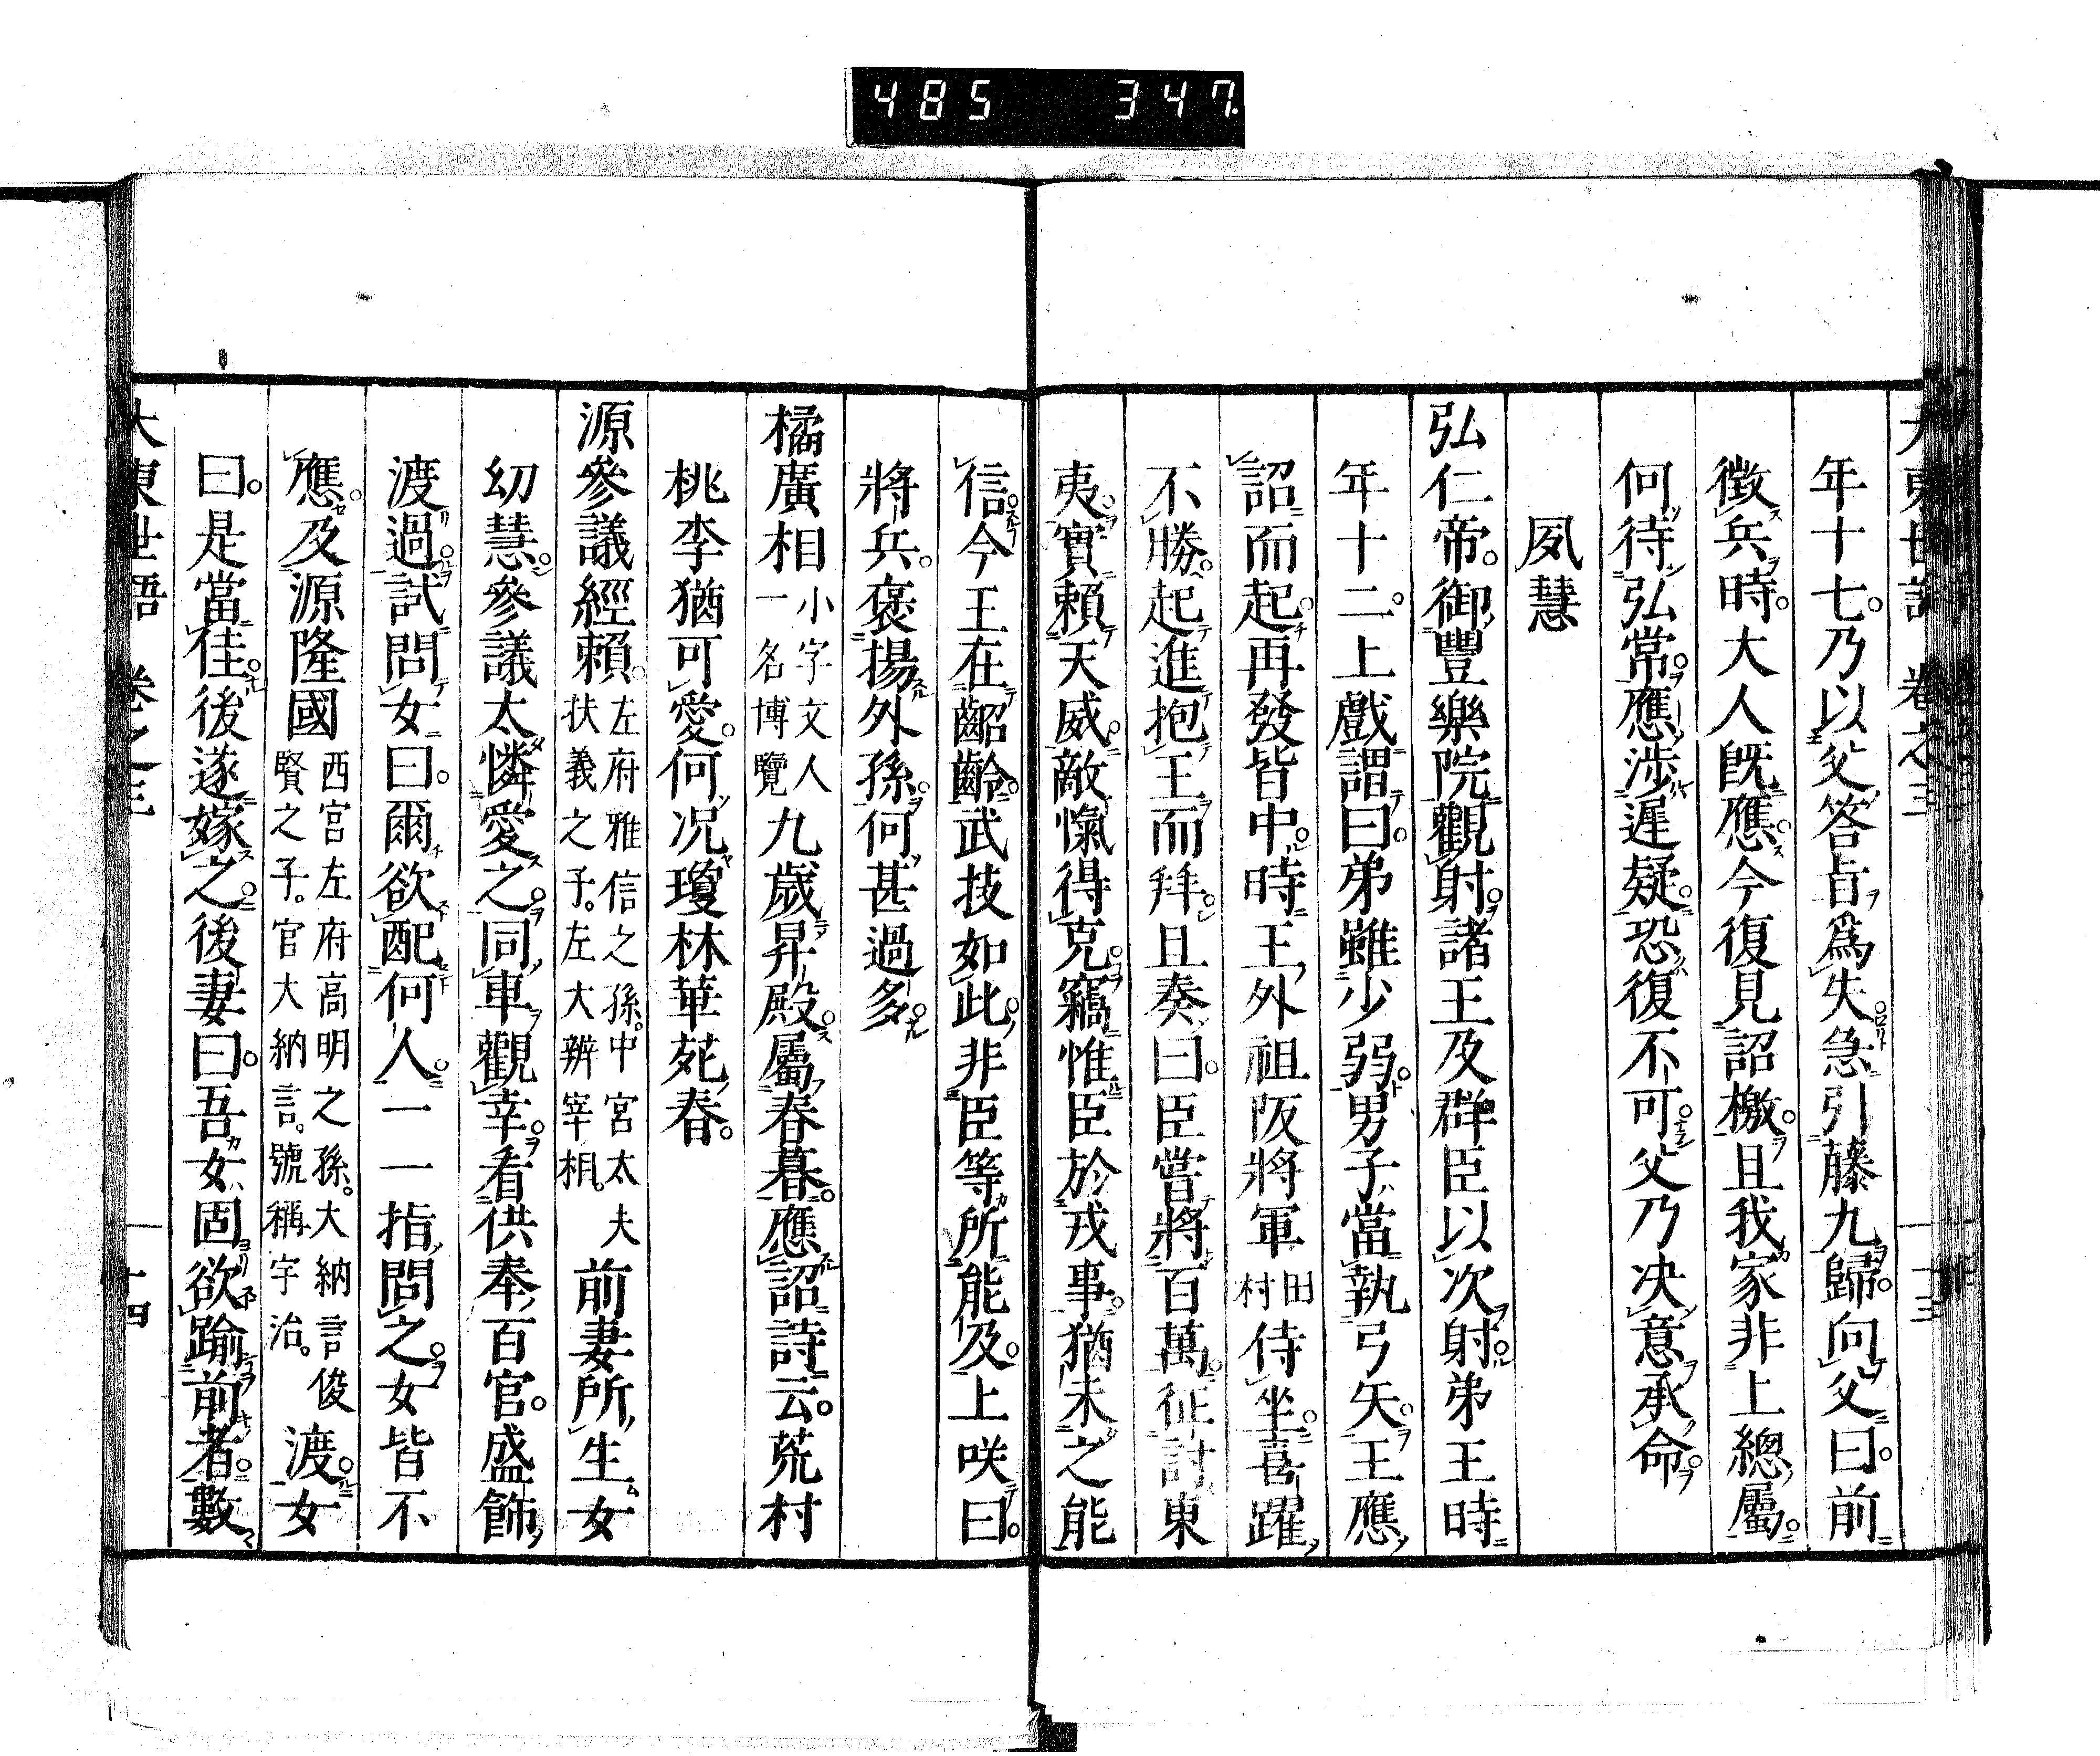 485 347
大東世語 卷之三 十三
年十七。乃以父答旨爲失。急引藤九歸。向父曰。前
徴兵時。大人既應。今復見詔檄。且我家非上總屬。
何待弘常應。渉遲疑。恐復不可。父乃决意承命。
夙慧
弘仁帝。御豐樂院觀射。諸王及群臣以次射。弟王時
年十二。上戲謂曰。弟雖少弱。男子當執弓矢。王應
詔而起。再發皆中。時王外祖阪將軍田村侍坐。喜躍
不勝。起進抱王而拜。且奏曰。臣嘗將百萬。征討東
夷。實頼天威。敵愾得克。竊惟臣於戎事。猶未之能
信。今王在齠齡。武技如此。非臣等所能及。上咲曰。
將兵。褒揚外孫。何甚過多。
橘廣相小字文人一名博覽九歳昇殿。屬春暮。應詔詩云。荒村
桃李猶可愛。何况瓊林華苑春。
源參議經頼。左府雅信之孫。中宮太夫扶義之子。左大辨宰相。前妻所生女
幼慧。參議太憐愛之。同車觀幸。看供奉百官。盛飾
渡過。試問女曰。爾欲配何人。一一指問之。女皆不
應。及源隆國西宮左府高明之孫。大納言俊賢之子。官大納言。號稱宇治。渡。女
曰。是當佳。後遂嫁之。後妻曰。吾女固欲踰前者。數
大東世語 卷之三 十四